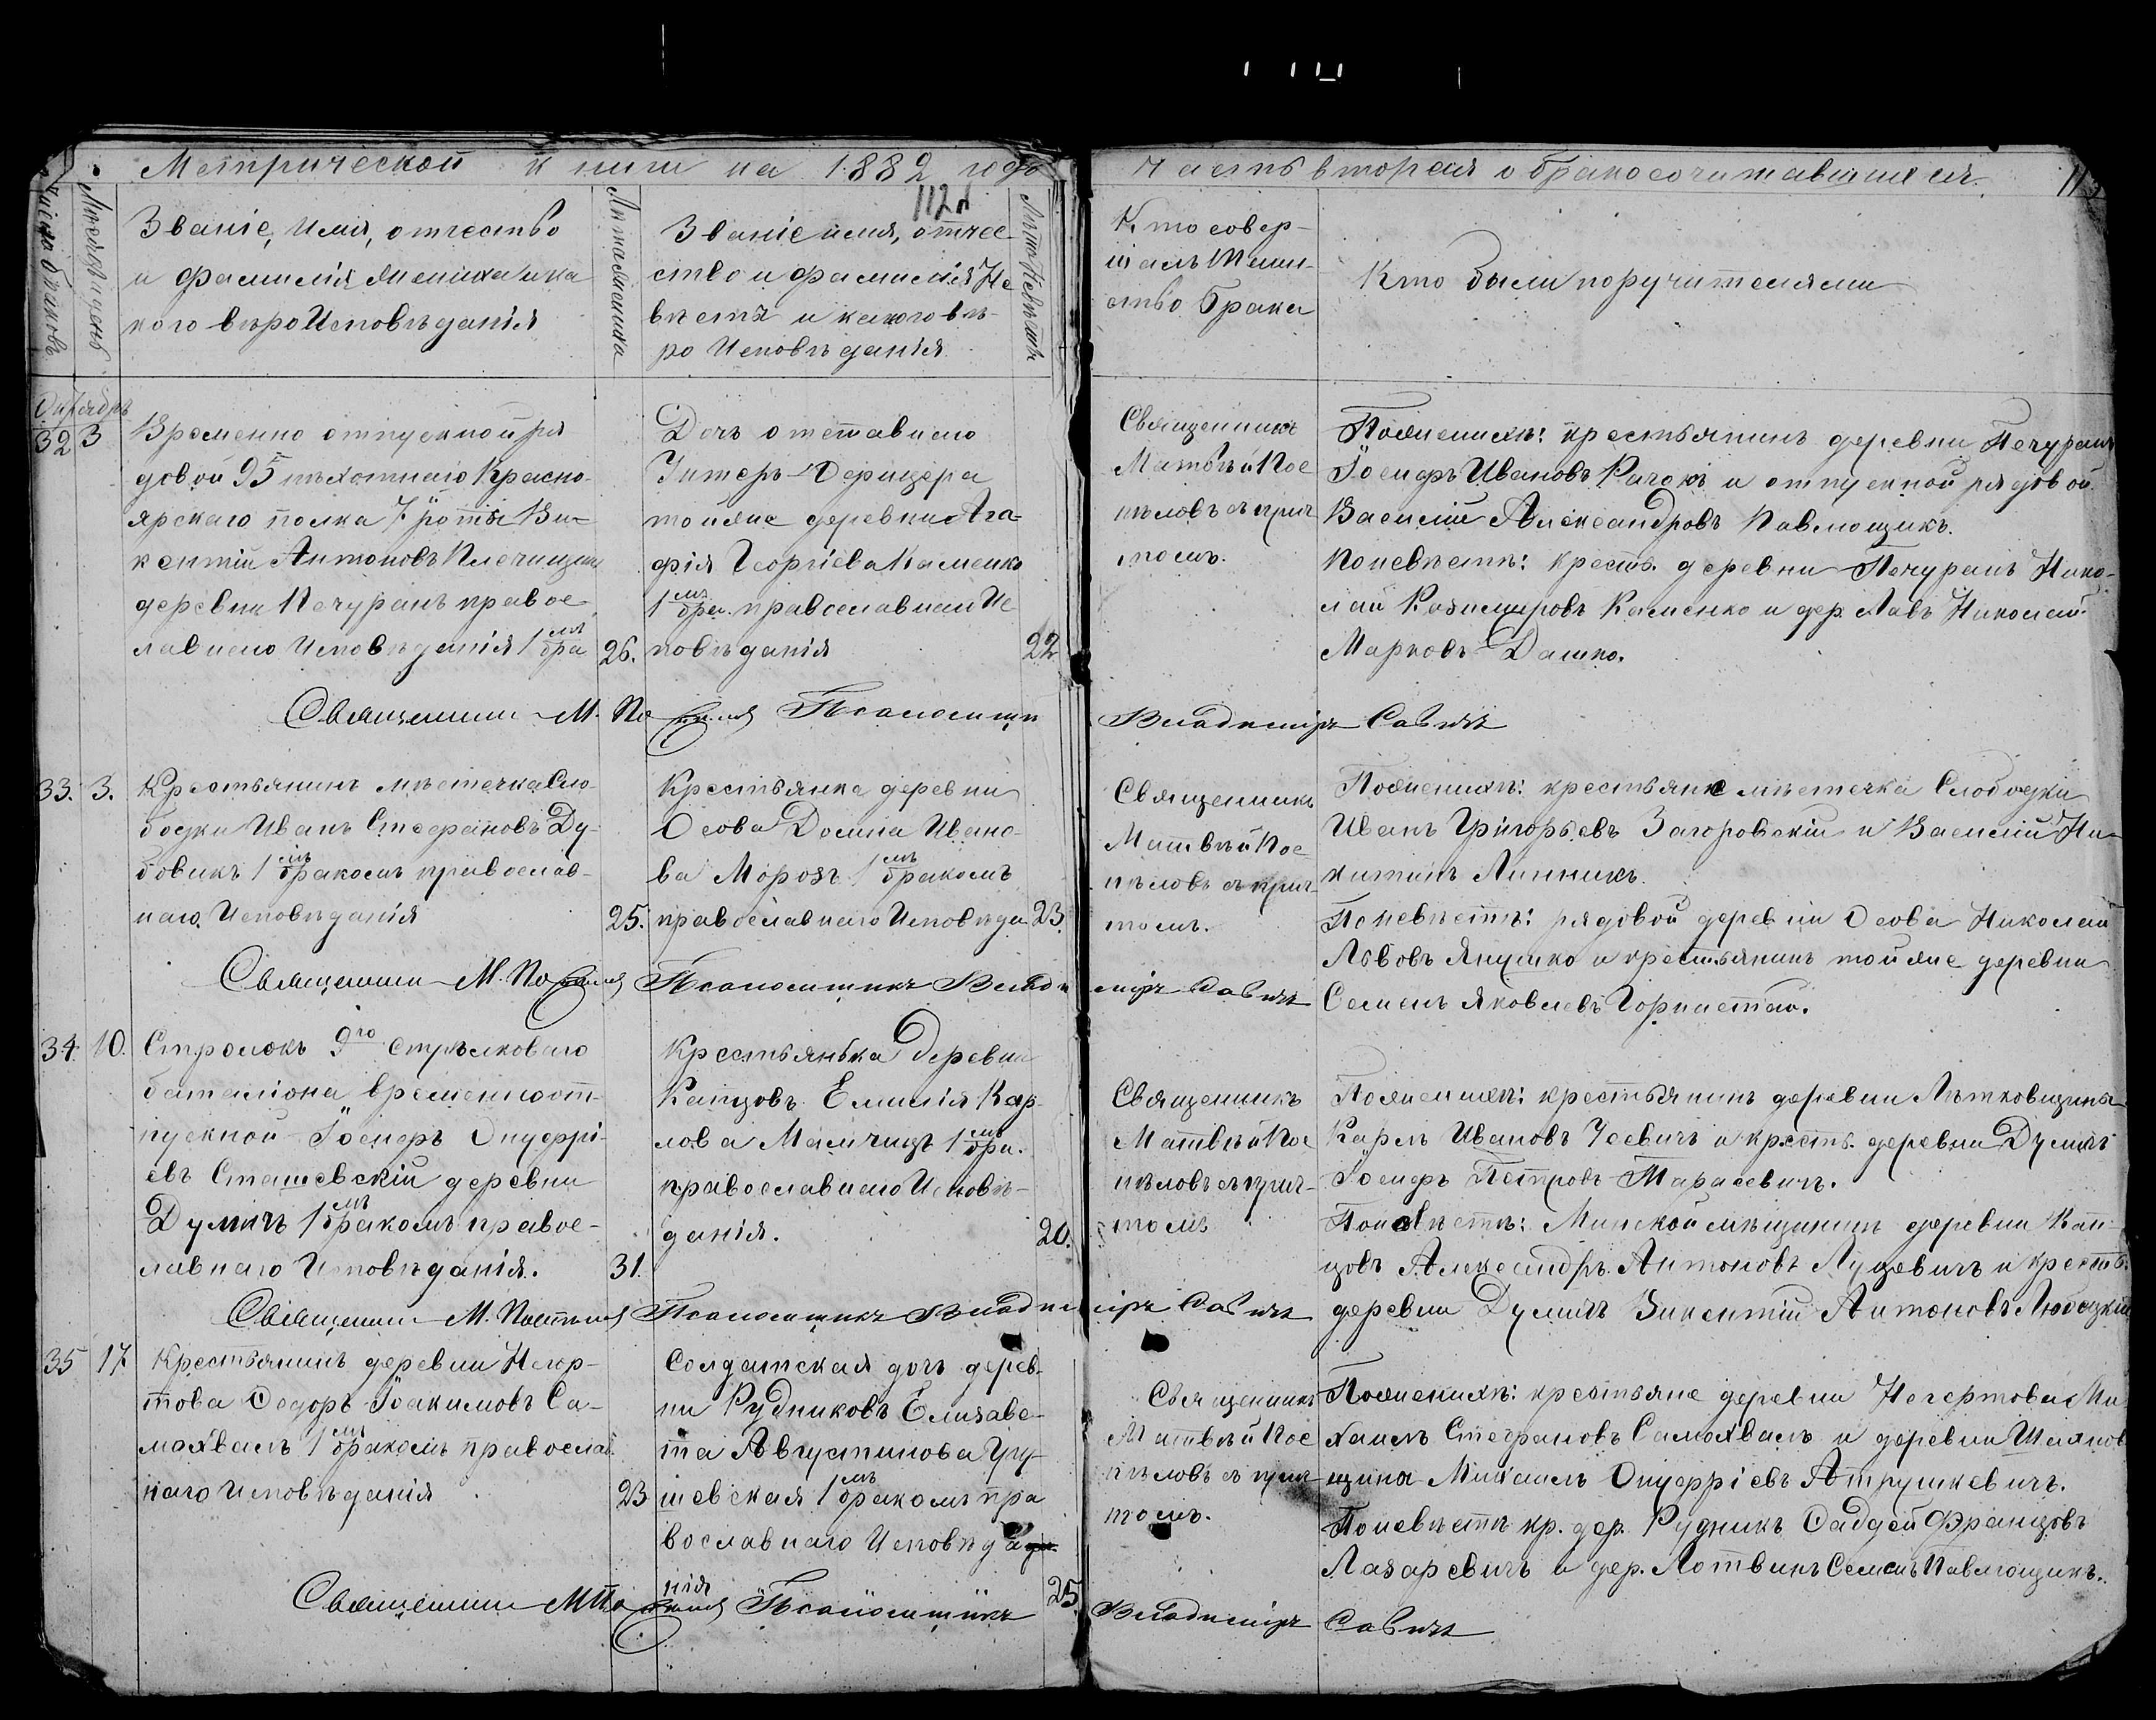 Метрической книги на 1882 годъ
часть вторая о бракосочитавшихся.
112
Числа браковъ
Мѣсяцъ и день
Званіе, имя, отчество
и фамилія жениха и ка
кого вѣроисповѣданія
Лѣта жениха
Званіе имя, отчес
ство и фамилія Не
вѣсты и какого вѣ-
ро Исповѣданія
Лѣта Невѣсты
Кто совер-
шалъ таин-
ство брака
Кто были поручителями
Октябрь
32 3
Временно отпускной ря
довой 95 пѣхотнаго Красно-
ярскаго полка 7. роты Ви-
кентій Антоновъ
деревни Печуранъ правос-
лавнаго Исповѣданія 1мъ бра
26.
Дочь отставнаго
Унтеръ-Офицера
тойже деревни Ага-
фія Георгіева Каменко
1мъ бра. православнаго Ис
повѣданія
22
Священникъ
Матвѣй Пос
пѣловъ съ прич
томъ.
Пожениха: крестьянинъ деревни Печуранъ
Іосифъ Ивановъ и отпускной рядовой
Василій Александровъ Павлющикъ.
Поневѣстѣ: крест. деревни Печуранъ Нико-
лай Казимировъ Каменко и дер. Лавъ Николай
Марковъ Дашко.
Священникъ М. Поспѣловъ Псаломщикъ Владиміръ Савичъ
33. 3.
Крестьянинъ мѣстечка Сло-
бодки Иванъ Стефановъ Ду-
бовикъ 1мъ бракомъ православ-
наго Исповѣданія
25.
Крестьянка деревни
Осова Домна Ивано-
ва Морозъ 1мъ бракомъ
православнаго Исповѣда
23.
Священникъ
Матвѣй Пос
пѣловъ съ прич-
томъ.
Поженихѣ: крестьяне мѣстечка Слободки
Иванъ Григорьевъ Загоровскій и Василій Ни-
китинъ Линникъ.
Поневѣстѣ: рядовой деревни Осова Николай
Львовъ Янушко и крестьянинъ тойже деревни
Семенъ Яковлевъ Горностай.
Священникъ М. Поспѣловъ Псаломщикъ Владиміръ Савичъ
34. 10.
Стрѣлокъ 9го стрѣлковаго
баталіона временноот-
пускной Іосифъ Онуфрі-
евъ Сташевскій деревни
Думичъ 1мъ бракомъ правос-
лавнаго Исповѣданія.
31.
Крестьянька деревни
Капцовъ Емилія Кар-
лова 1мъ бра.
православнаго Исповѣ-
данія.
20.
Священникъ
Матвѣй Пос
пѣловъ съ прич-
томъ
Поженихѣ: крестьянинъ деревни Лѣтковщина
Карлъ Ивановъ Усевичъ и крест. деревни Думичъ
Іосифъ Петровъ Тарасевичъ.
Поневѣстѣ: Минской мѣщанинъ деревни Кап-
цовъ Александръ Антоновъ Луцевичъ и крестъ.
деревни Думичъ Викентій Антоновъ Любецкій
Священникъ М. Поспѣловъ Псаломщикъ Владиміръ Савичъ
35 17
Крестьянинъ деревни Нечер-
това Федоръ Іоакимовъ Са-
мохвалъ 1мъ бракомъ православ
наго Исповѣданія
23
Солдатская дочь дерев-
ни Рудниковъ Елизаве-
та Августинова Гру-
шевская 1мъ бракомъ пра
вославнаго Исповѣда
нія
25.
Священникъ
Матвѣй Пос
пѣловъ съ прич
томъ.
Поженихѣ: крестьяне деревни Нечертова Ми
хаилъ Стефановъ Самохвалъ и деревни
щина Михаилъ Онуфріевъ Атрушкевичъ.
Поневѣстѣ кр. дер. Рудникъ Фаддей Францовъ
Лазаревичъ и дер. Лотвинъ Семенъ Павлющикъ.
Священникъ М. Поспѣловъ Псаломщикъ Владиміръ Савичъ